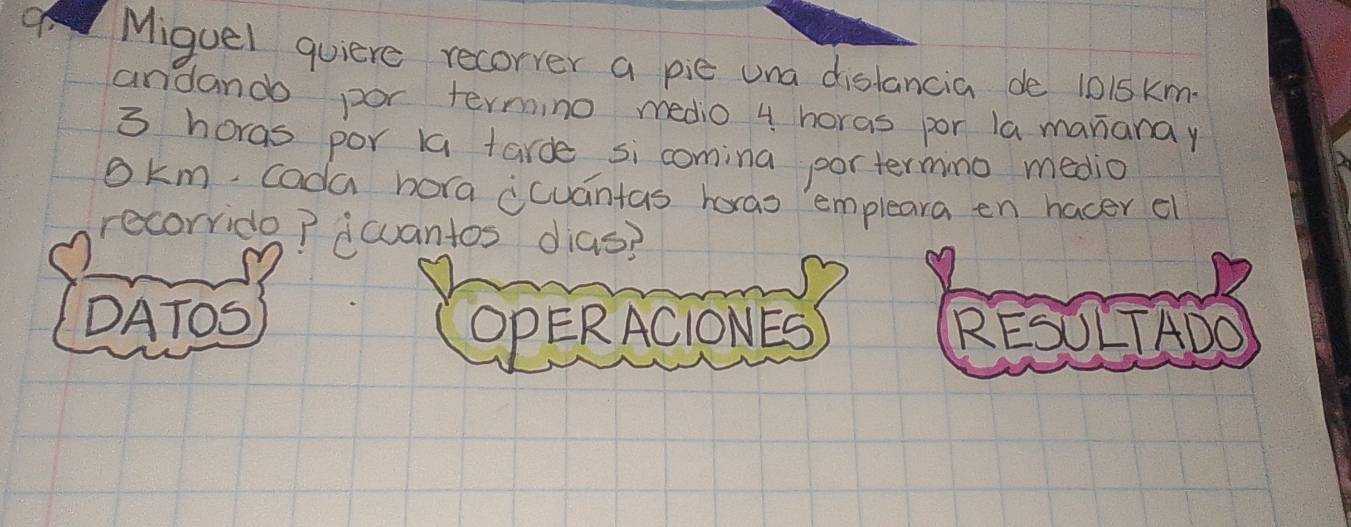 9. Miguel quiere recorrer a pie una distancia de 1015 km.
andando por termino medio 4 horas por la mañana y
3 horas por la tarde si comina por termino medio
0 km. cada hora ¿cuántas horas empleara en hacer el
recorrido? ¿cuantos dias?
DATOS OPERACIONES RESULTADO